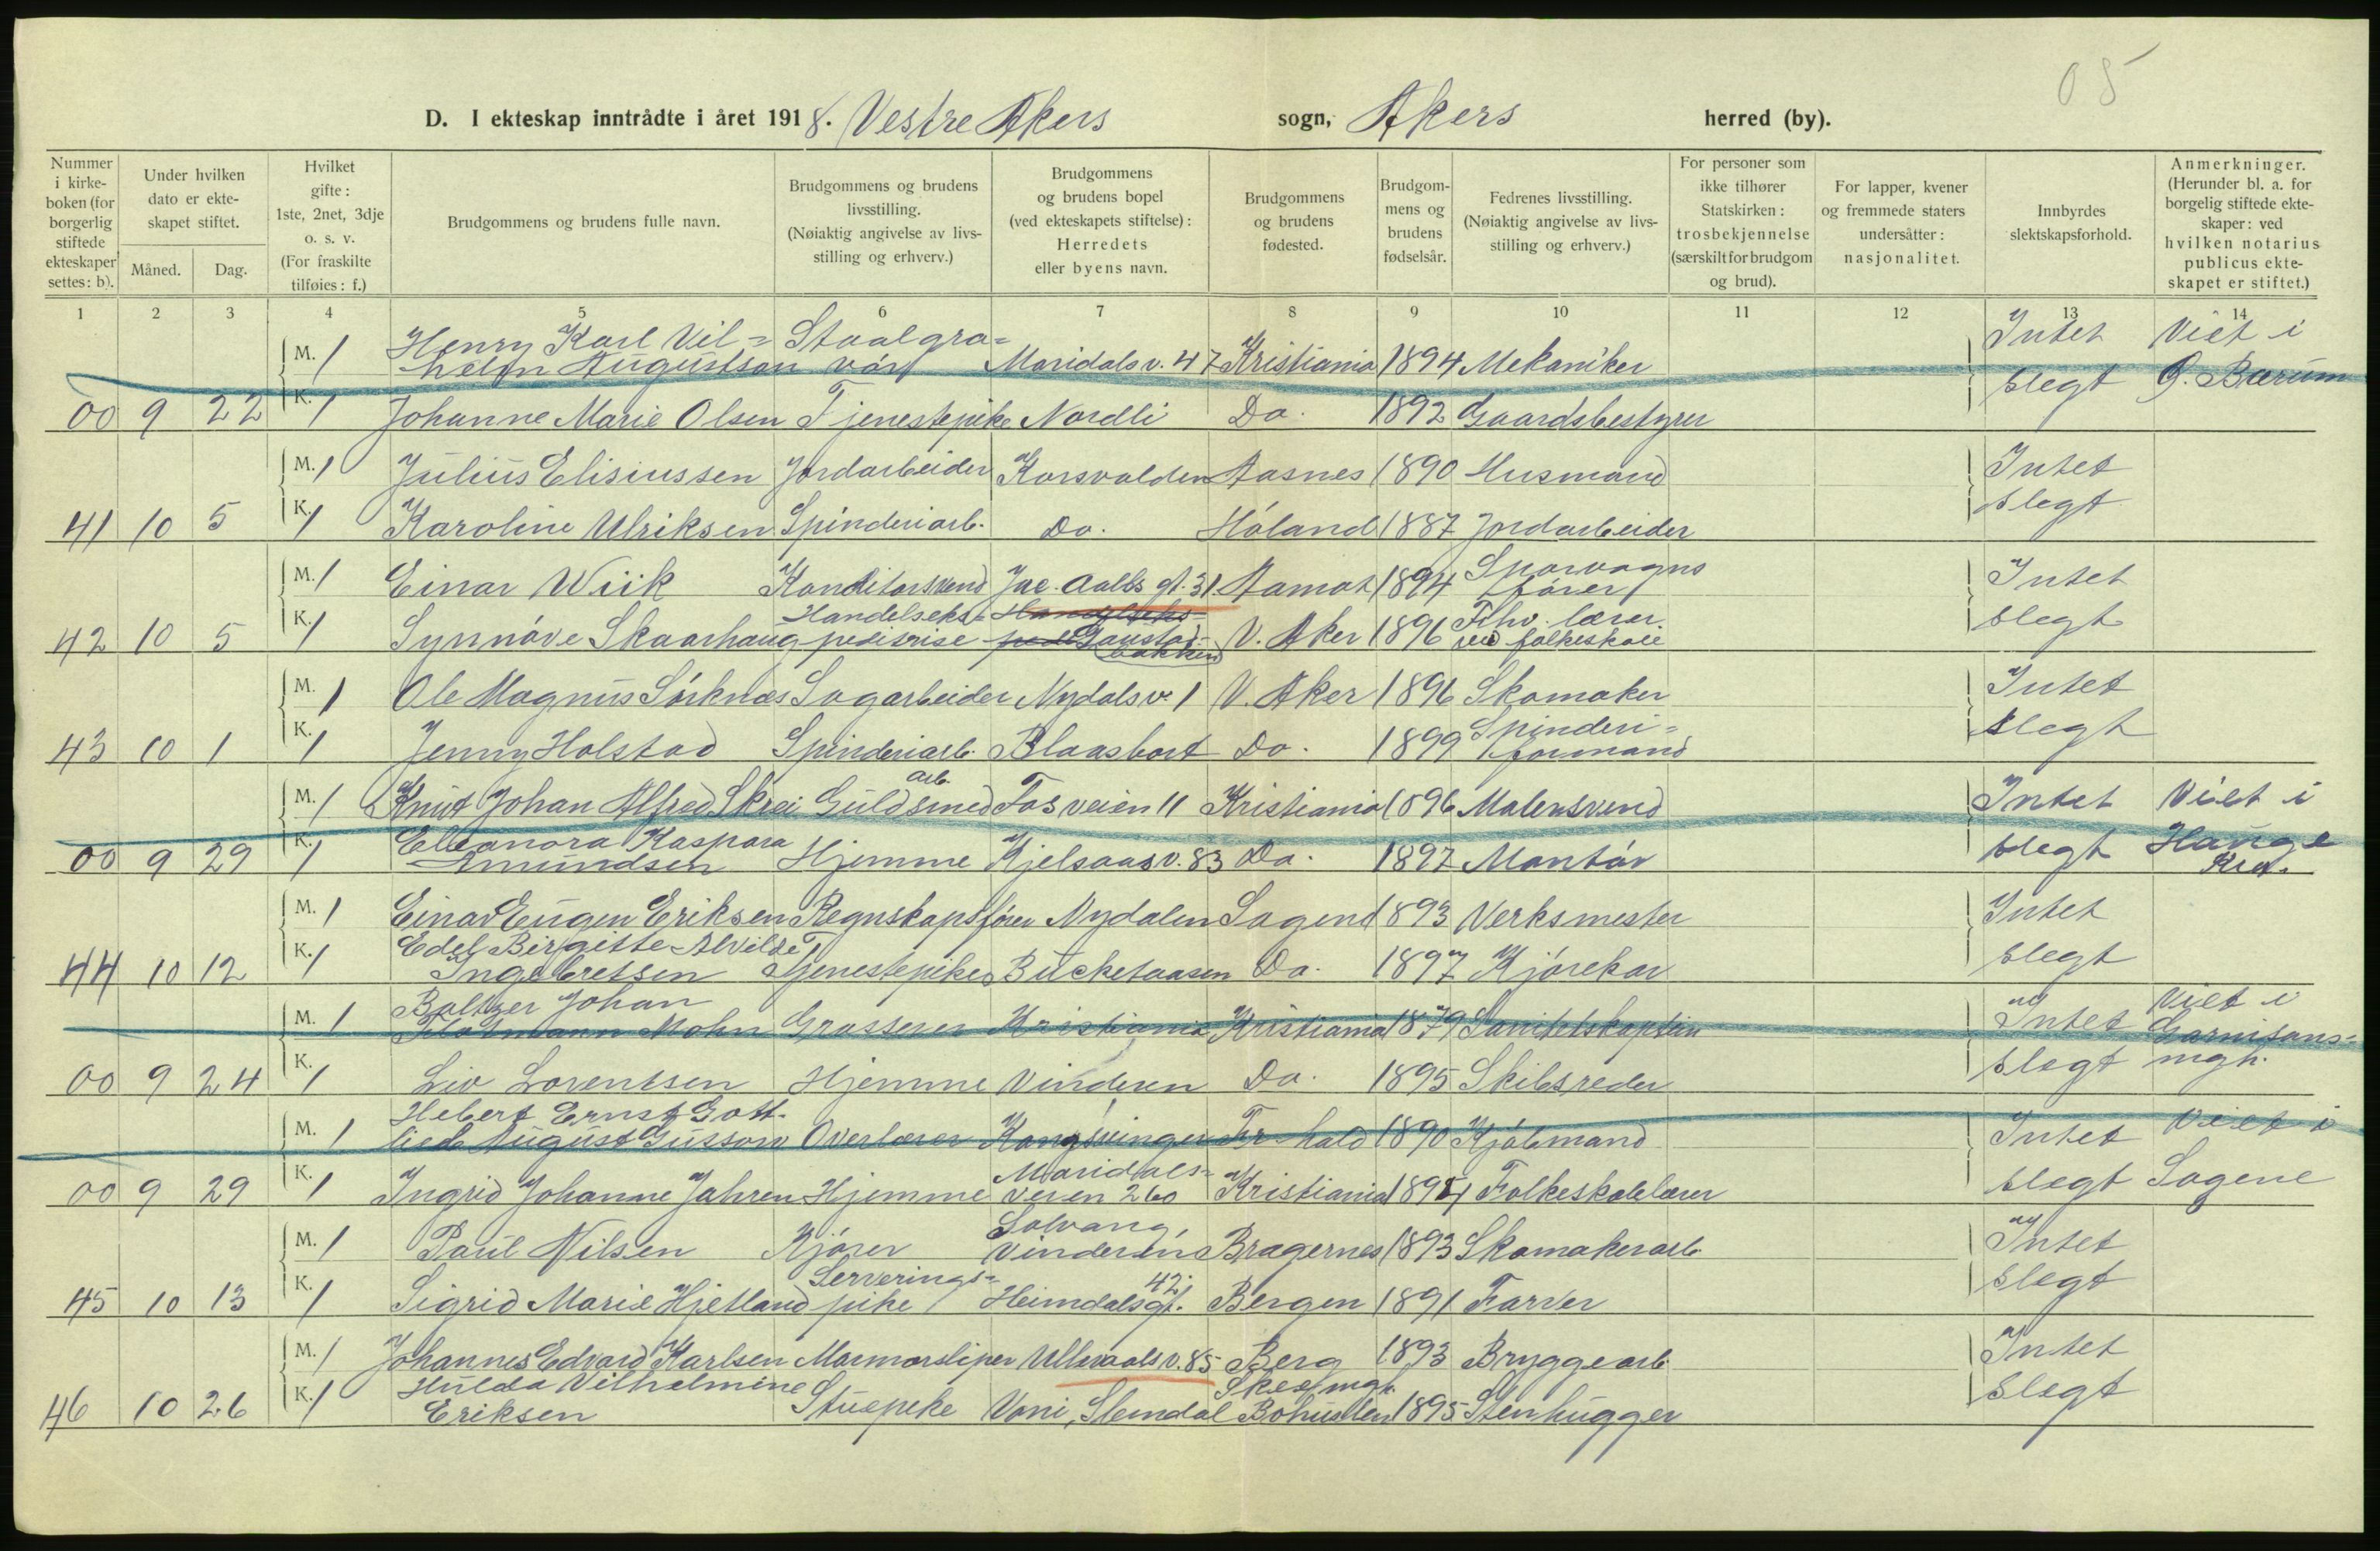 05
D. I ekteskap inntrådte i året 1918. Vestre Akers sogn, Akers herred (by).
Nummer i kirkeboken (for borgerlig stiftede ekteskaper settes: b).
Under hvilken dato er ekteskapet stiftet.
Måned. Dag.
Hvilket gifte: 1ste, 2net, 3dje o. s. v. (For fraskilte tilføies: f.)
Brudgommens og brudens fulle navn.
Brudgommens og brudens livsstilling. (Nøiaktig angivelse av livsstilling og erhverv.)
Brudgommens og brudens bopel (ved ekteskapets stiftelse): Herredets eller byens navn.
Brudgommens og brudens fødested.
Brudgommens og brudens fødselsår.
Fedrenes livsstilling. (Nøiaktig angivelse av livsstilling og erhverv.)
For personer som ikke tilhører Statskirken: trosbekjennelse (særskilt for brudgom og brud).
For lapper, kvener og fremmede staters undersåtter: nasjonalitet.
Innbyrdes slektskapsforhold.
Anmerkninger. (Herunder bl. a. for borgelig stiftede ekteskaper: ved hvilken notarius publicus ekteskapet er stiftet.)
1 2 3 4 5 6 7 8 9 10 11 12 13 14
M. 1 Henry Karl Vilhelm Augustson Staalgravør Maridalsv. 47 Kristiania 1894 Mekaniker Intet Viet i
00 9 22 K. 1 Johanne Marie Olsen Tjenestepike Nordli Do. 1892 Gaardsbestyrer slegt Ø. Bærum
M. 1 Julius Elisiussen Jordarbeider Korsvolden Aasnes 1890 Husmand Intet
41 10 5 K. 1 Karoline Ulriksen Spinderiarb. Do. Høland 1887 Jordarbeider slegt
M. 1 Einar Wiik Konditorsvend Jac. Aalls gt. 31 Aamot 1894 Sporvognsfører Intet
42 10 5 K. 1 Synnøve Skaarhaug Handelsekspeditrise Gaustadbakken V. Aker 1896 Fhv. lærer ved folkeskole slegt
M. 1 Ole Magnus Sørknæs Sagarbeider Nydalsv. 1 V. Aker 1896 Skomaker Intet
43 10 1 K. 1 Jenny Holstad Spinderiarb. Blaasbort Do. 1899 Spinderiformand slegt
M. 1 Knut Johan Alfred Skrei Guldsmed arb. Fosveien 11 Kristiania 1896 Malersvend Intet Viet i
00 9 29 K. 1 Elleonora Kaspara Amundsen Hjemme Kjelsaasv. 83 Do. 1897 Montør slegt Hauge Kra.
M. 1 Einar Eugen Eriksen Regnskapsfører Nydalen Sagene 1893 Verksmester Intet
44 10 12 K. 1 Edel Bergitte Alvilde Ingebretsen Tjenestepike Bucketaasen Do. 1897 Kjørekar slegt
M. 1 Baltzer Johan Mohn Grosserer Kristiania Kristiania 1879 Sanitetskaptein Intet Viet i
00 9 24 K. 1 Liv Lorentsen Hjemme Vinderen Do. 1895 Skibsreder slegt Garnisonsmgh.
M. 1 Hebert Ernst Gottlieb August Gussow Overlærer Kongsvinger Fr.hald 1890 Kjøbmand Intet Viet i
00 9 29 K. 1 Ingrid Johanne Jahren Hjemme Maridalsveien 260 Kristiania 1894 Folkeskolelærer slegt Sagene
M. 1 Paul Nilsen Kjører Solvang, Vinderen Bragernes 1893 Skomakerarb. Intet
45 10 13 K. 1 Sigrid Marie Hjetland Serveringspike Heimdalsgt. 42. Bergen 1891 Farver slegt
M. 1 Johannes Edvard Karlsen Marmorsliper Ullevaalsv. 85 Berg 1893 Bryggearb. Intet
46 10 26 K. 1 Hulda Vilhelmine Eriksen Stuepike Voni, Slemdal Skee mgh. Bohuslen 1895 Stenhugger slegt